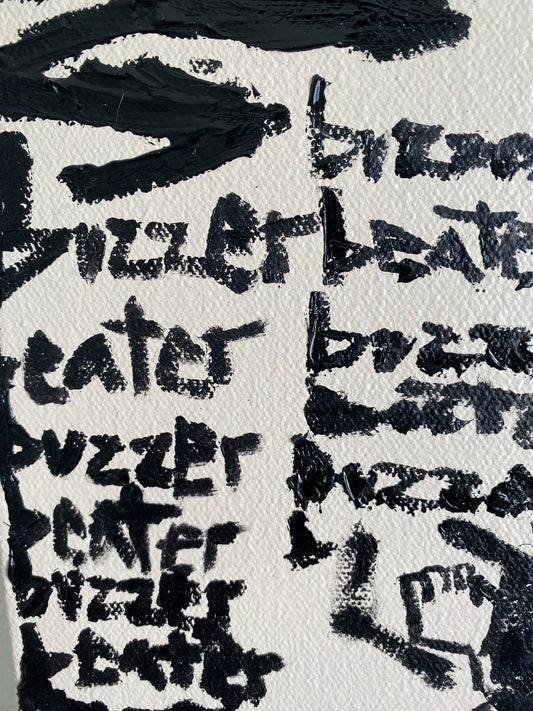 buzzer
beater
buzzer
beater
buzzer
beater
buzze
beate
buzze
buzze